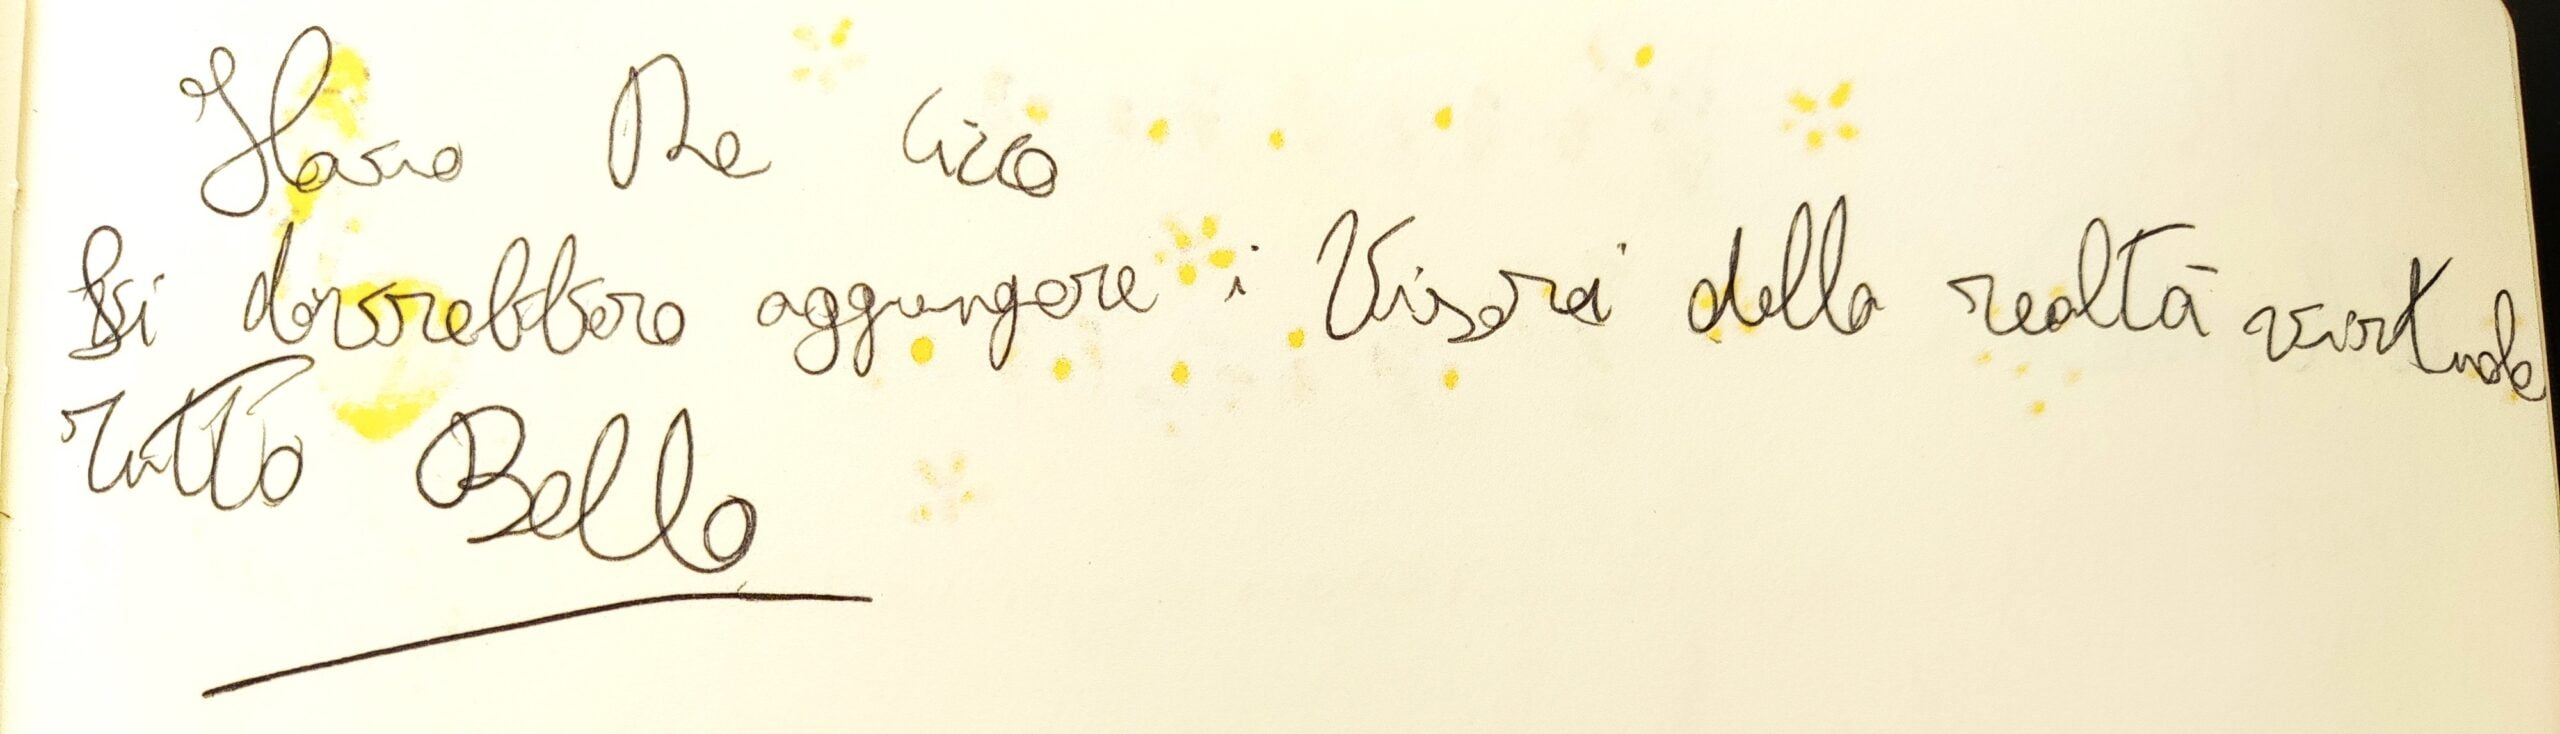 Ilario De Cicco
Si dovrebbero aggungere i Visori della realtà virtuale
Tutto Bello